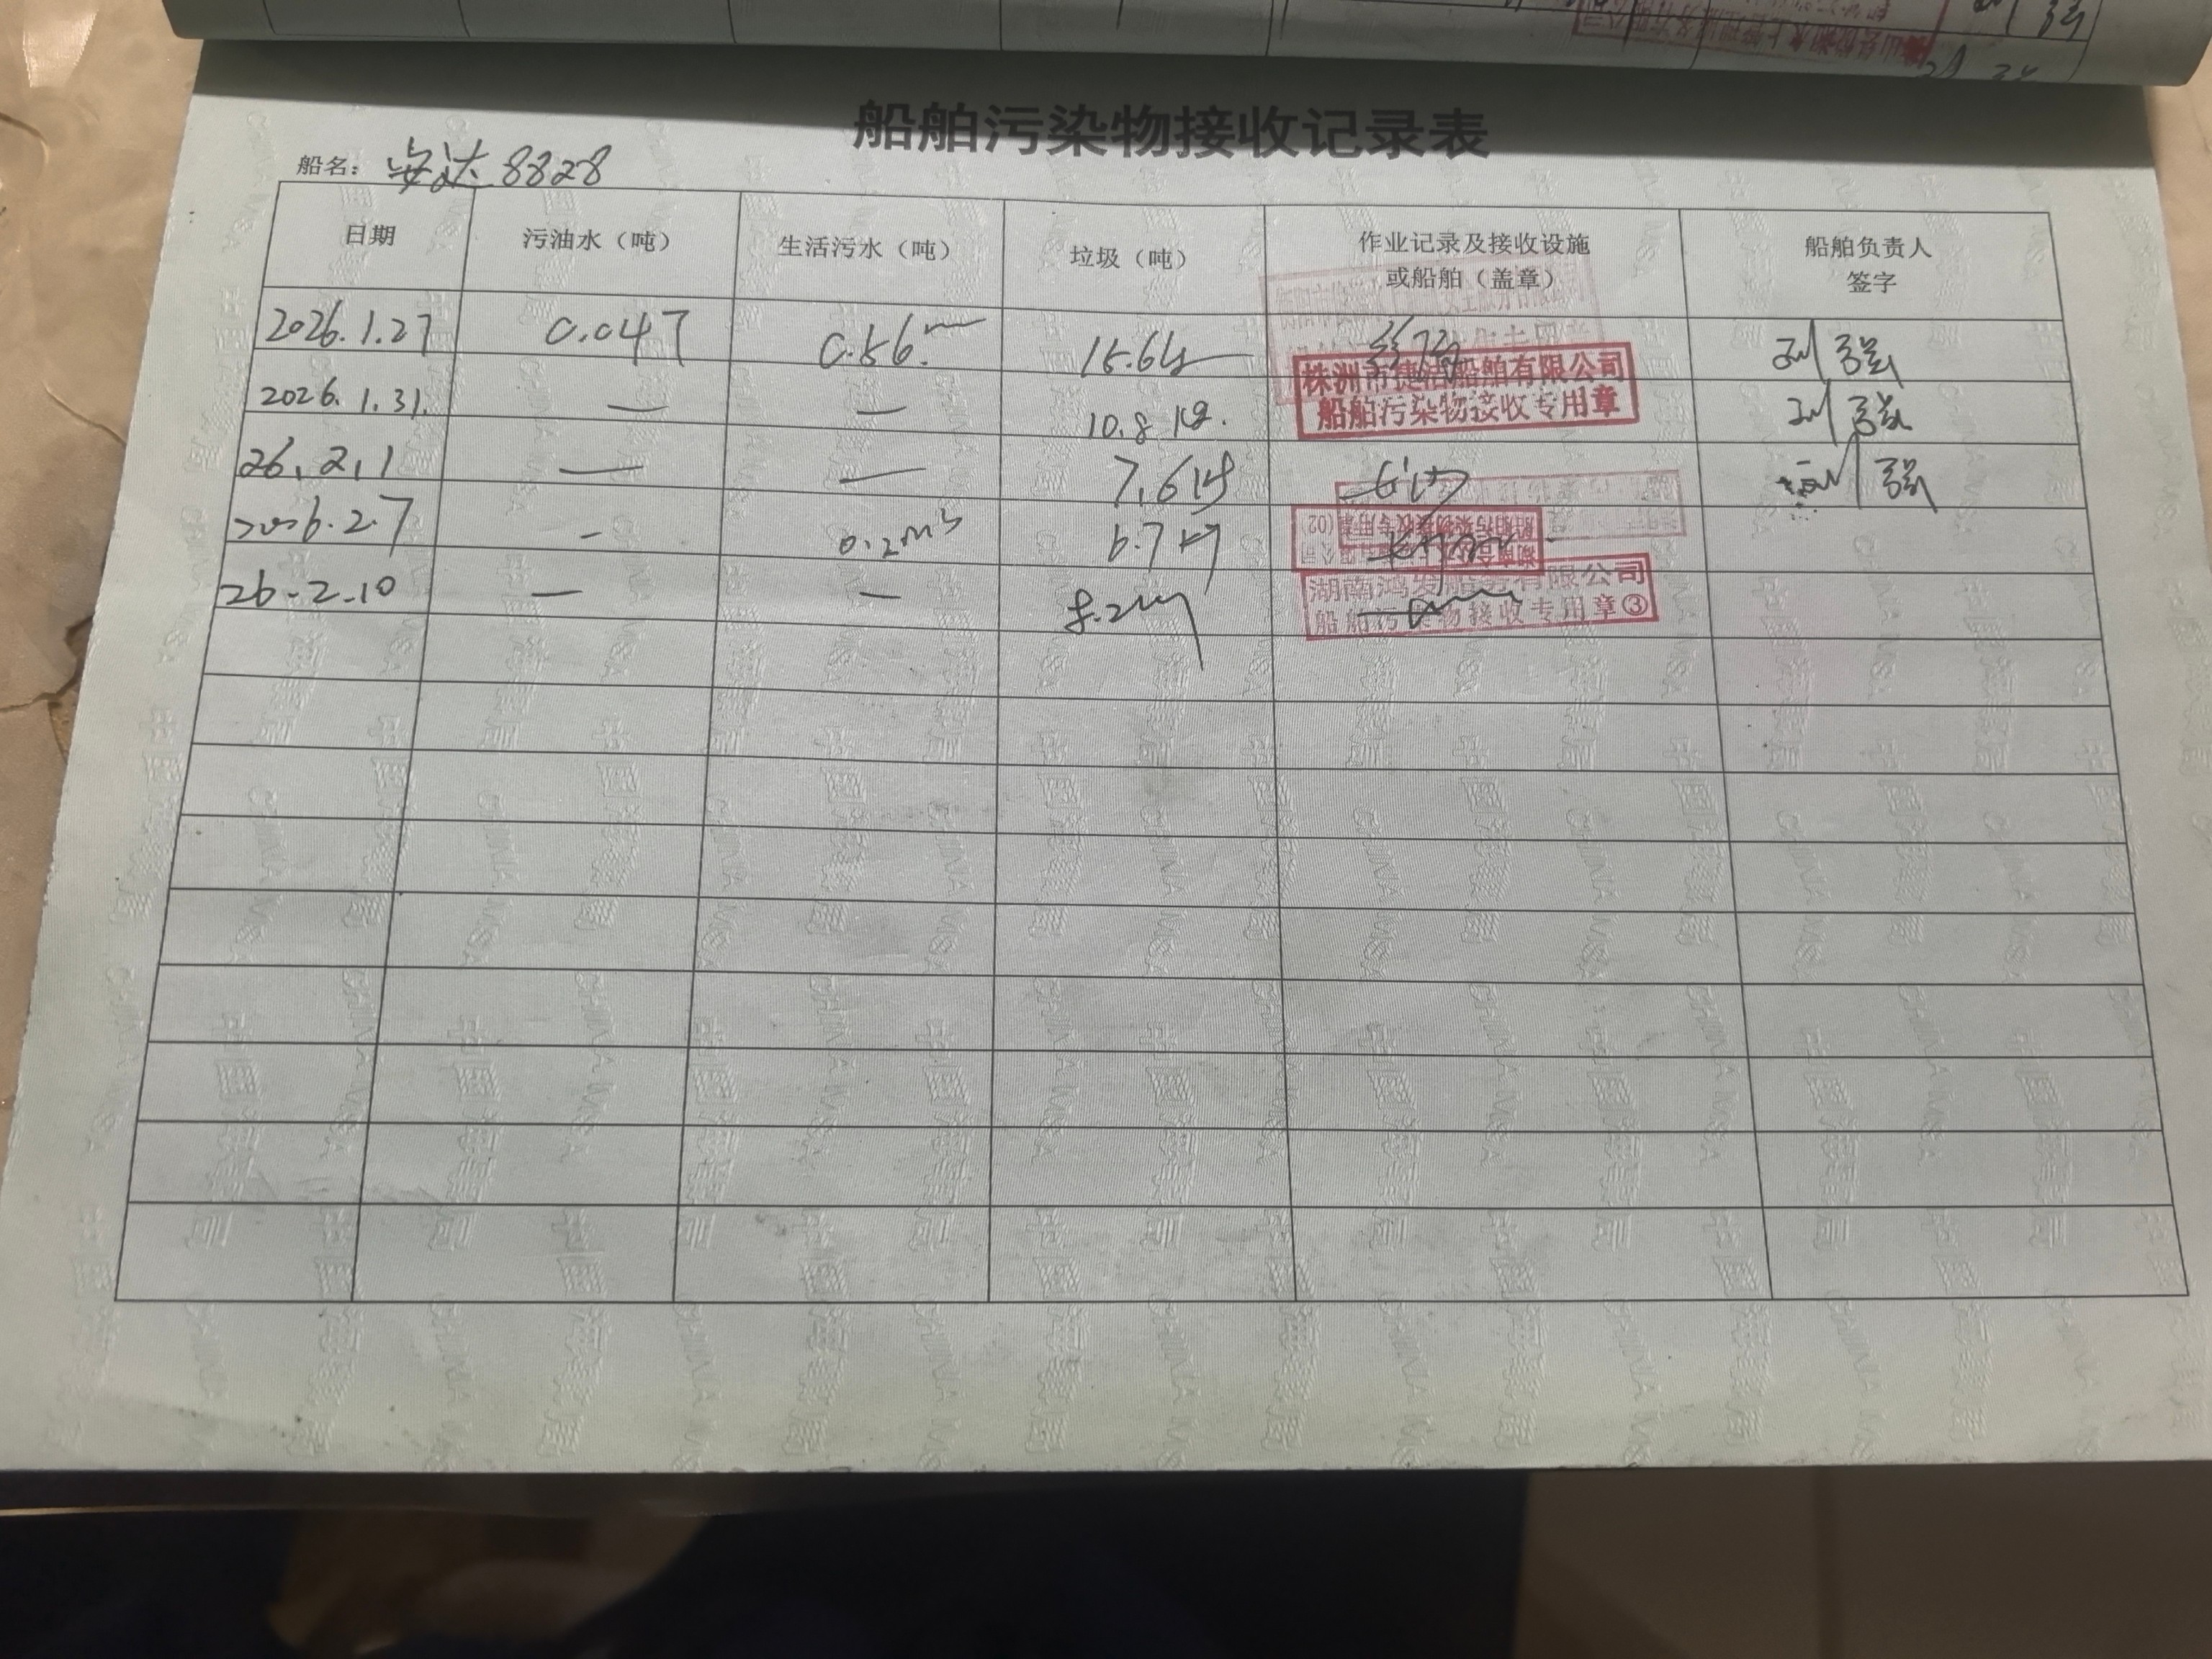 船舶污染物接收记录表
船名: 安达8828
日期 污油水（吨） 生活污水（吨） 垃圾（吨） 作业记录及接收设施或船舶（盖章） 船舶负责人签字
2026.1.27 0.047 0.56 15.6 刘强
株洲市捷洁船舶有限公司
船舶污染物接收专用章
2026.1.31. — — 10.8 kg. 刘强
26.2.1 — — 7.6 刘强
2026.2.7 - 0.2m³ 6.7
船舶污染物接收专用章(02)
26-2-10 — — 8.2
湖南鸿发船务有限公司
船舶污染物接收专用章③
中国海事局
CHINA MSA